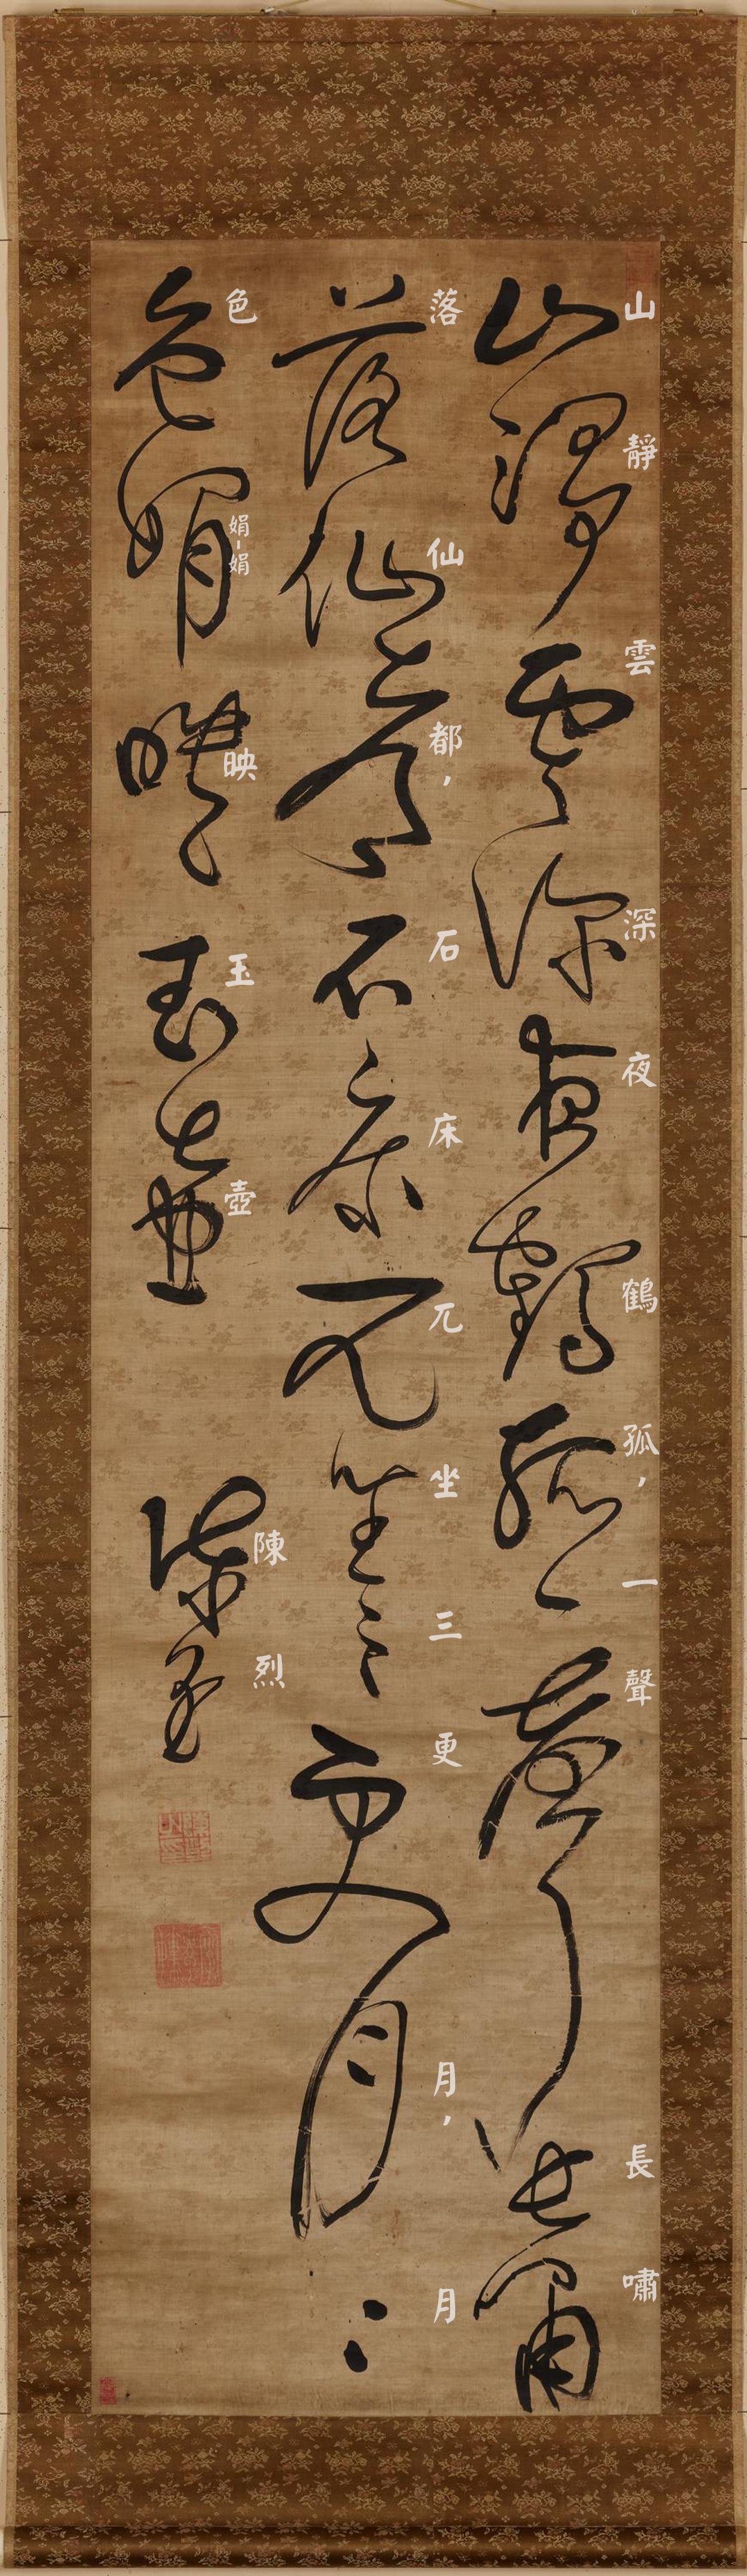 山靜雲深夜鶴孤，一聲長嘯
落仙都，石床兀坐三更月，月
色娟娟映玉壺
陳烈